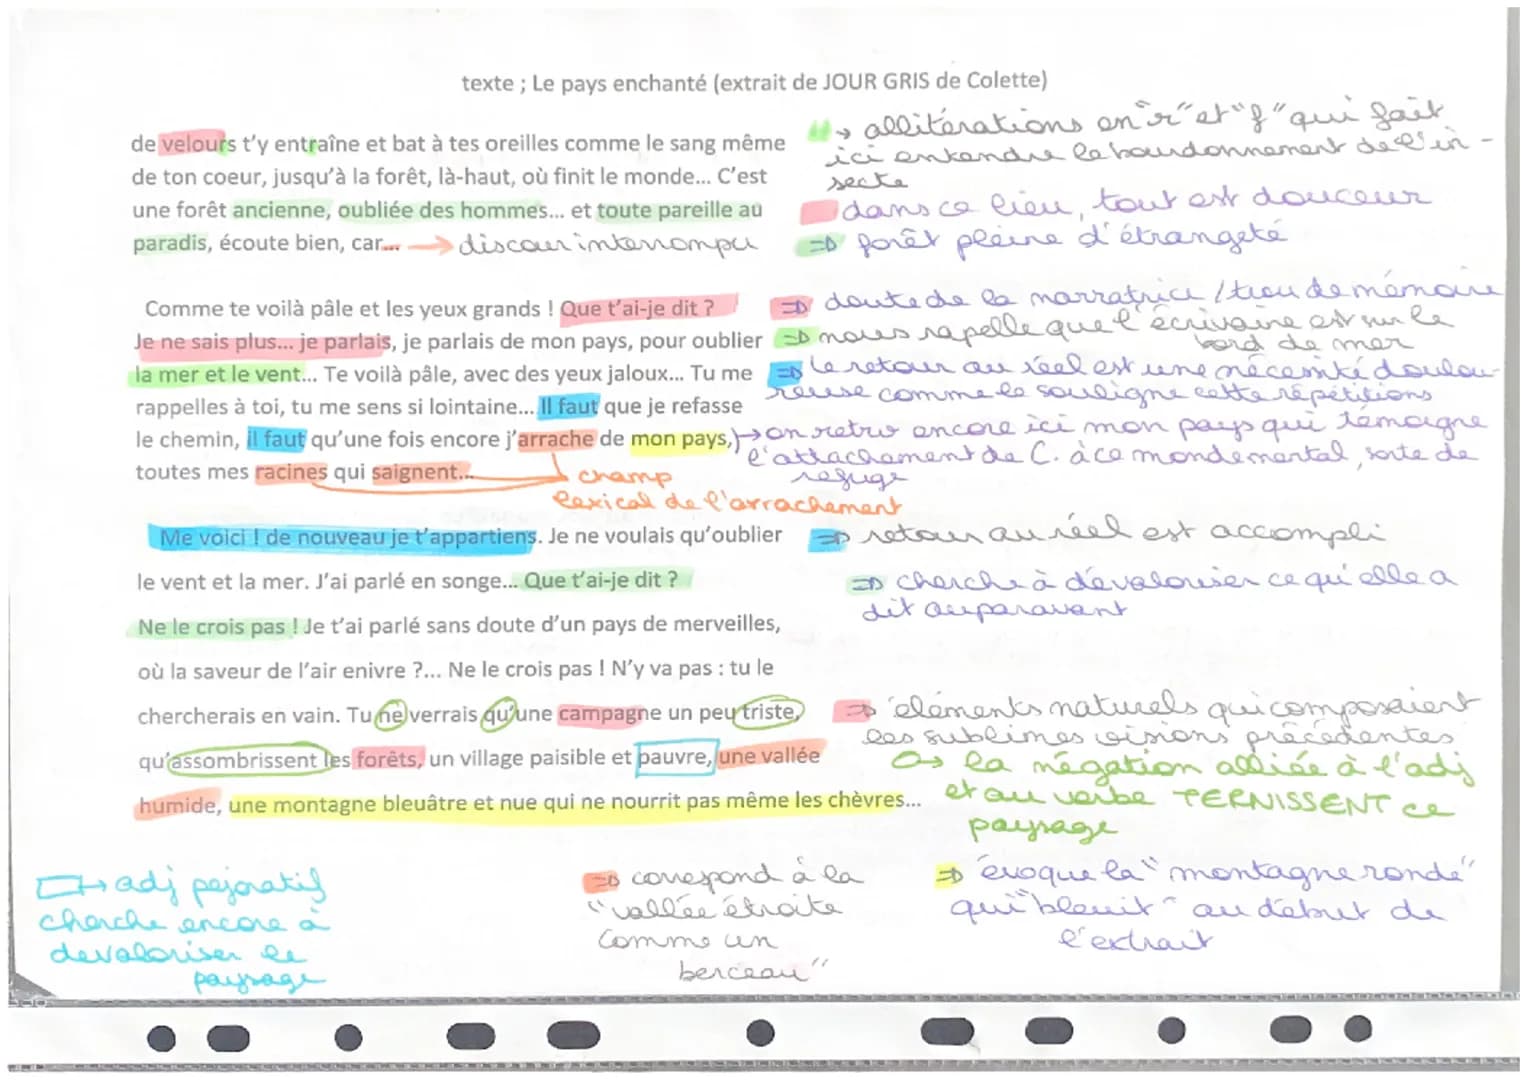 texte ; Le pays enchanté (extrait de JOUR GRIS de Colette)
de velours t'y entraîne et bat à tes oreilles comme le sang même
de ton coeur, jusqu'à la forêt, là-haut, où finit le monde... C'est
une forêt ancienne, oubliée des hommes... et toute pareille au
paradis, écoute bien, car... → discour interrompu
→ allitérations en "r" et "f" qui fait
ici entendre le bourdonnement de l'in-
secte
dans ce lieu, tout est douceur
⇒ forêt pleine d'étrangeté
Comme te voilà pâle et les yeux grands ! Que t'ai-je dit ?
Je ne sais plus... je parlais, je parlais de mon pays, pour oublier
la mer et le vent... Te voilà pâle, avec des yeux jaloux... Tu me
rappelles à toi, tu me sens si lointaine... Il faut que je refasse
le chemin, il faut qu'une fois encore j'arrache de mon pays,
toutes mes racines qui saignent...
champ
lexical de l'arrachement
⇒ doute de la narratrice / trou de mémoire
⇒ nous rapelle que l'écrivaine est sur le
bord de mer
⇒ le retour au réel est une nécessité doulou-
reuse comme le souligne cette répétitions
→ on retrv encore ici mon pays qui témoigne
l'attachement de C. à ce monde mental, sorte de
refuge
Me voici ! de nouveau je t'appartiens. Je ne voulais qu'oublier
le vent et la mer. J'ai parlé en songe... Que t'ai-je dit ?
Ne le crois pas ! Je t'ai parlé sans doute d'un pays de merveilles,
où la saveur de l'air enivre ?... Ne le crois pas ! N'y va pas : tu le
chercherais en vain. Tu ne verrais qu'une campagne un peu triste,
qu'assombrissent les forêts, un village paisible et pauvre, une vallée
humide, une montagne bleuâtre et nue qui ne nourrit pas même les chèvres...
⇒ retour au réel est accompli
⇒ cherche à dévaloriser ce qu'elle a
dit auparavant
⇒ éléments naturels qui composaient
les sublimes visions précédentes
→ la négation alliée à l'adj
et au verbe TERNISSENT ce
paysage
→ adj pejoratif
cherche encore à
devaloriser le
paysage
⇒ correspond à la
"vallée étroite
comme un
berceau"
⇒ évoque la "montagne ronde"
qui "bleuit" au début de
l'extrait